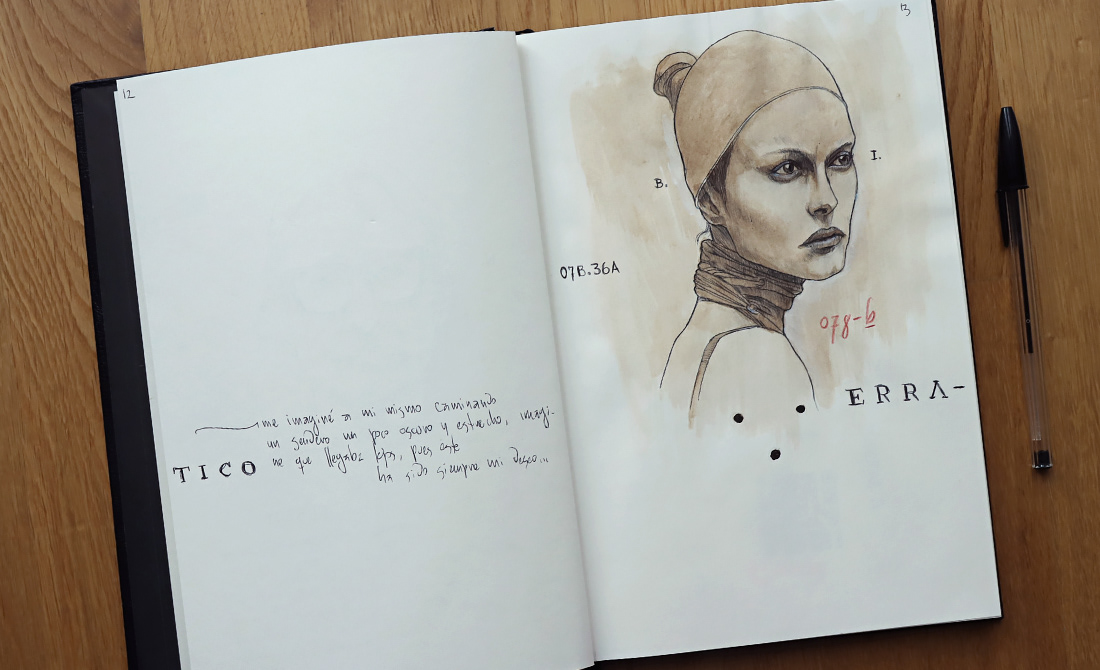 12
me imaginé a mi mismo caminando
un sendero un poco oscuro y estrecho, imagi-
né que llegaba lejos, pues este
ha sido siempre mi deseo...
TICO
13
B.
I.
07B.36A
078-b
ERRA-